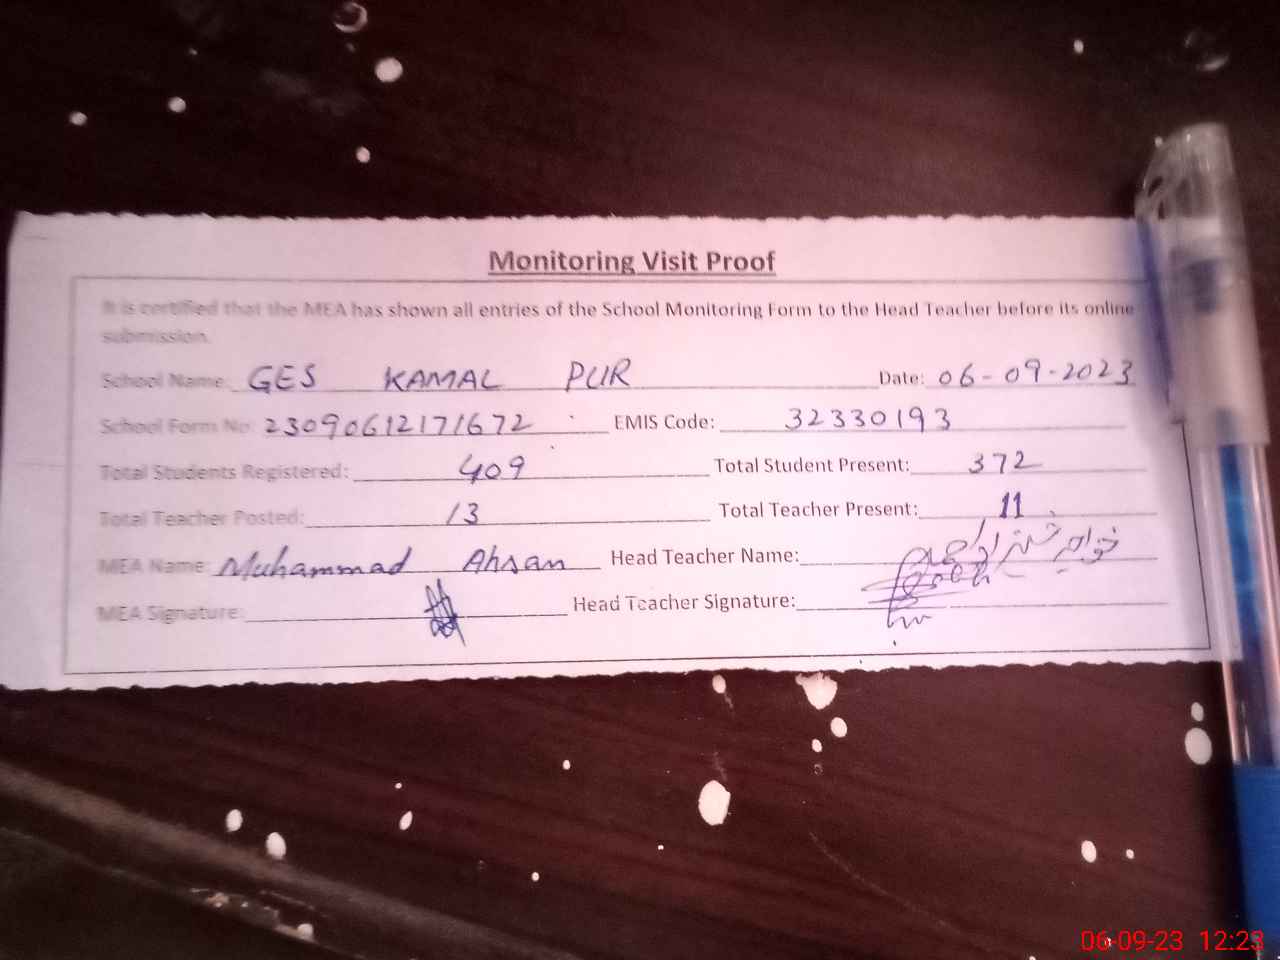 Monitoring Visit Proof
It is certified that the MEA has shown all entries of the School Monitoring Form to the Head Teacher before its online
submission.
School Name: GES KAMAL PUR Date: 06-09-2023
School Form No: 23090612171672 EMIS Code: 32330193
Total Students Registered: 409 Total Student Present: 372
Total Teacher Posted: 13 Total Teacher Present: 11
MEA Name: Muhammad Ahsan Head Teacher Name:
MEA Signature: Head Teacher Signature:
06-09-23 12:23